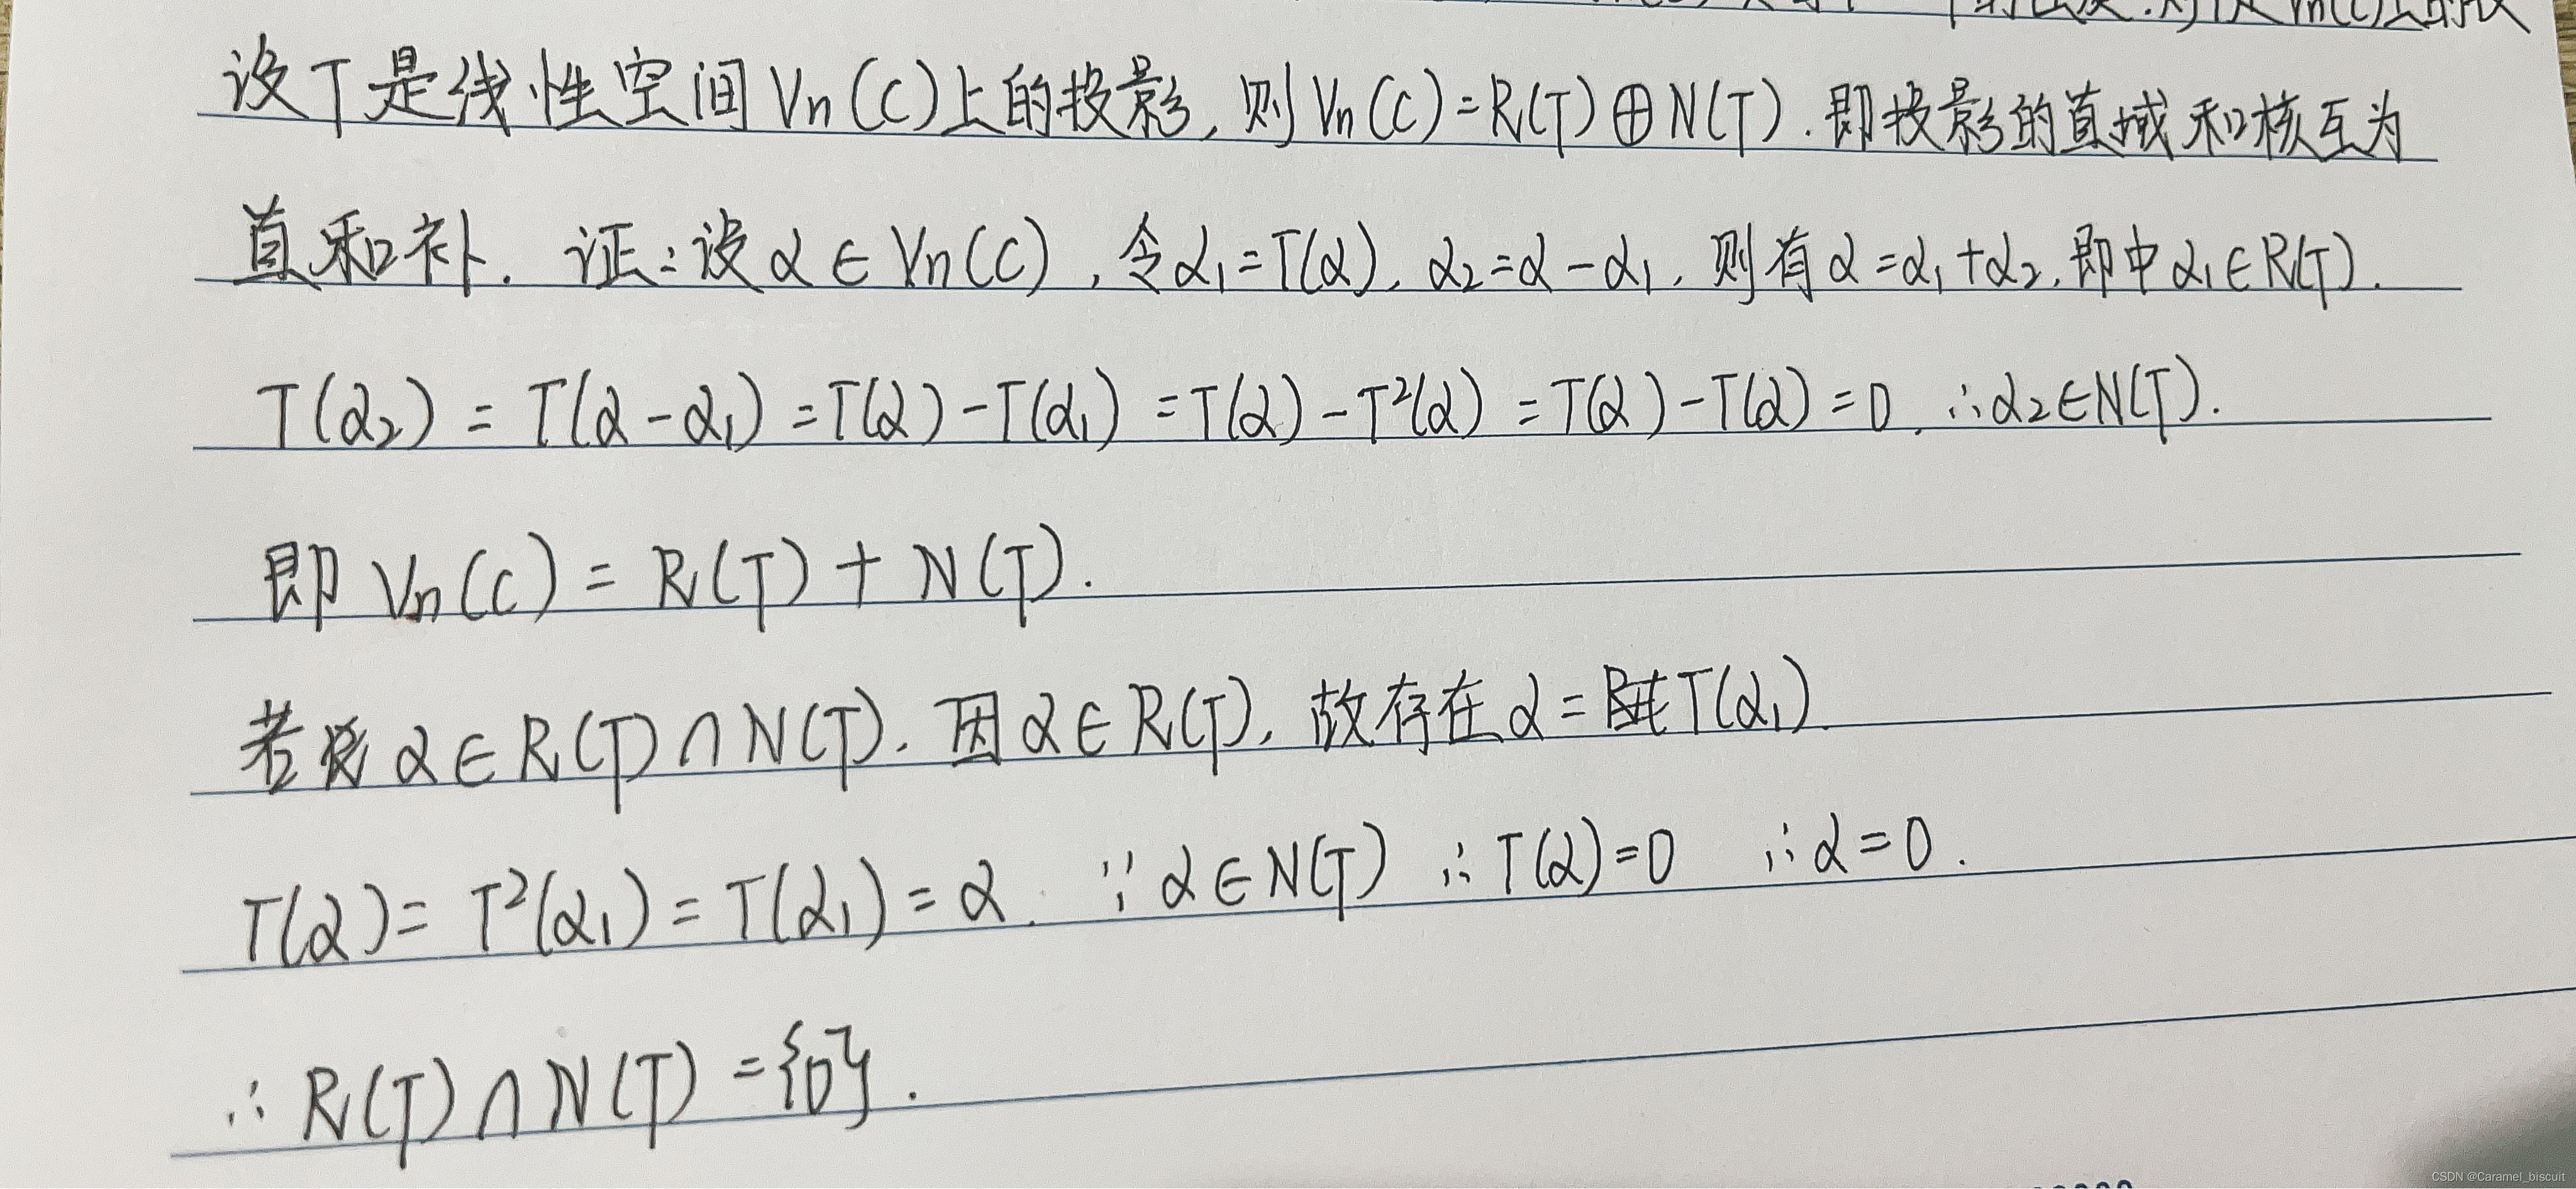 的 Vn(C)上的
设T是线性空间Vn(C)上的投影,则Vn(C)=R(T)⊕N(T).即投影的直域和核互为
直和补. 证:设α∈Vn(C),令α₁=T(α),α₂=α-α₁,则有α=α₁+α₂,即中α₁∈R(T).
T(α₂)=T(α-α₁)=T(α)-T(α₁)=T(α)-T²(α)=T(α)-T(α)=0,∴α₂∈N(T).
即Vn(C)=R(T)+N(T).
若α∈R(T)∩N(T).因α∈R(T),故存在α=T(α₁)
T(α)=T²(α₁)=T(α₁)=α. ∵α∈N(T) ∴T(α)=0 ∴α=0.
∴R(T)∩N(T)={0}.
CSDN @Caramel_biscuit